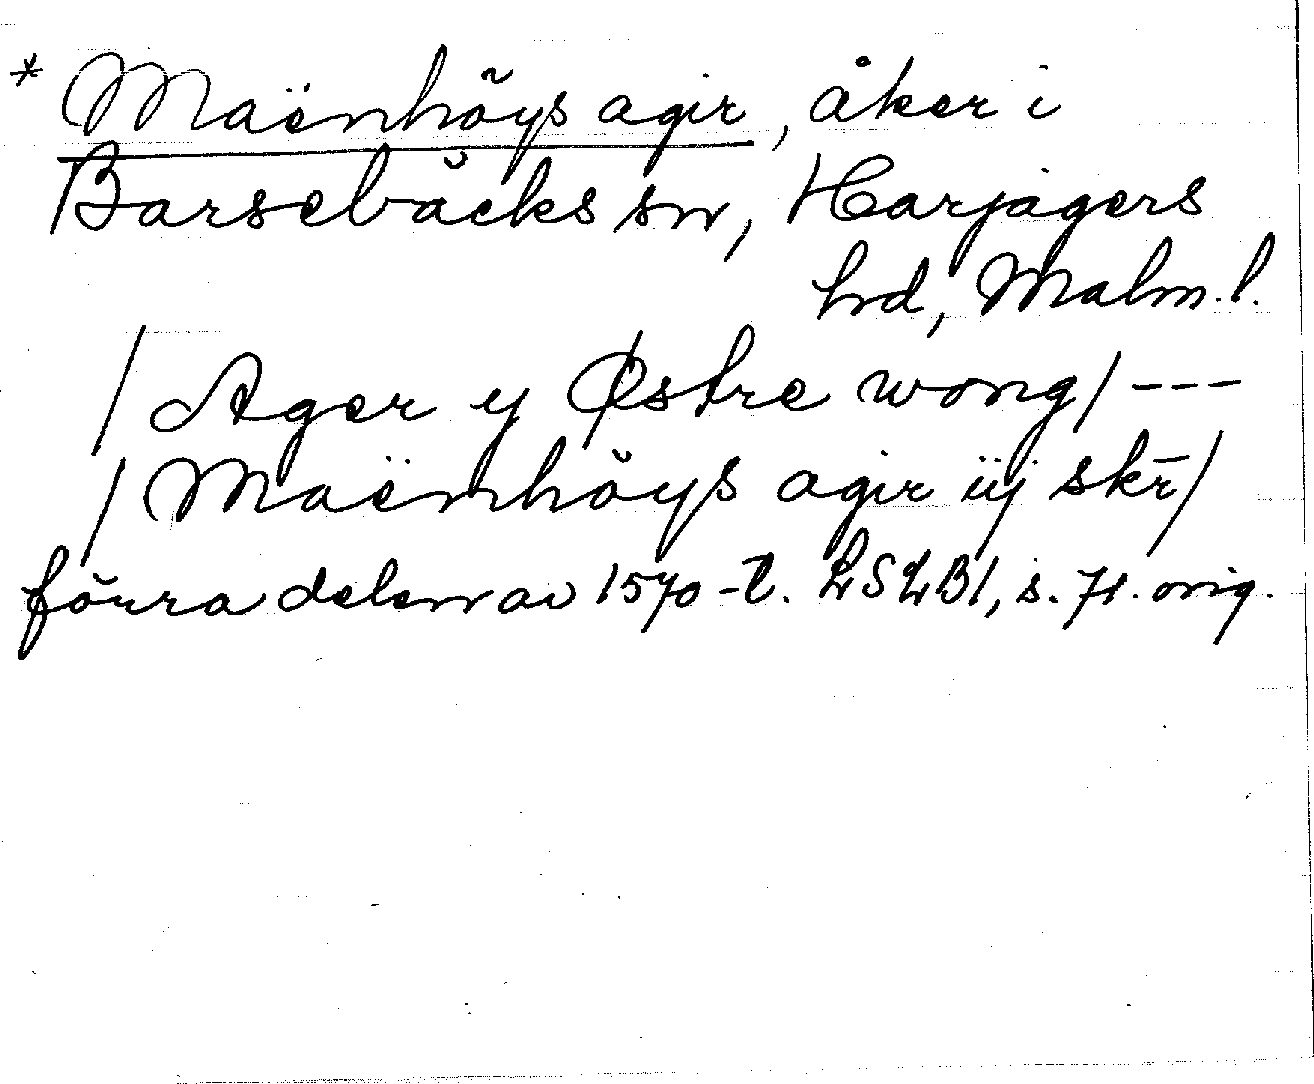 * Maënhöys agir, åker i
Barsebäcks sn, Harjagers
hd, Malm.l.
/ Ager y Østre wong / ---
/ Maënhöys agir iij skr̄ /
förra delen av 1570-t. LSLB1, s. 71. orig.